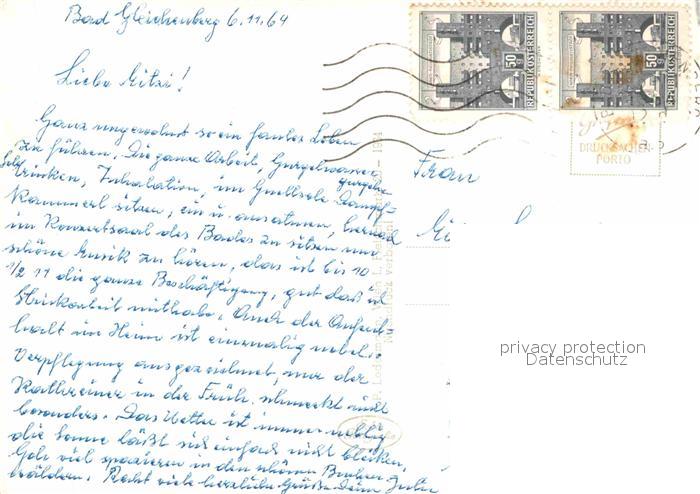 Bad Gleichenberg 6.11.64
Liebe Mitzi!
Ganz ungewohnt so ein faules Leben
zu führen. Die ganze Arbeit, Gurgelwasser
trinken, Inhalation, im Quellsole Dampf-
kammerl sitzen, ein u. ausatmen, hernach
im Konzertsaal des Bades zu sitzen und
schöne Musik zu hören, das ist bis 10
1/2 11 die ganze Beschäftigung, gut daß ich
Strickarbeit mithabe. Auch der Aufent-
halt im Heim ist einmalig nebel.
Verpflegung ausgezeichnet, nur der
Kathreiner in der Früh schmeckt nicht
besonders. Das Wetter ist immer neblig
die Sonne läßt sich einfach nicht blicken.
Geh viel spazieren in den schönen Buchen-
wäldern. Recht viele herzliche Grüße Deine
50
REPUBLIK ÖSTERREICH
50
REPUBLIK ÖSTERREICH
DRUCKSACHEN-
PORTO
Frau
privacy protection
Datenschutz